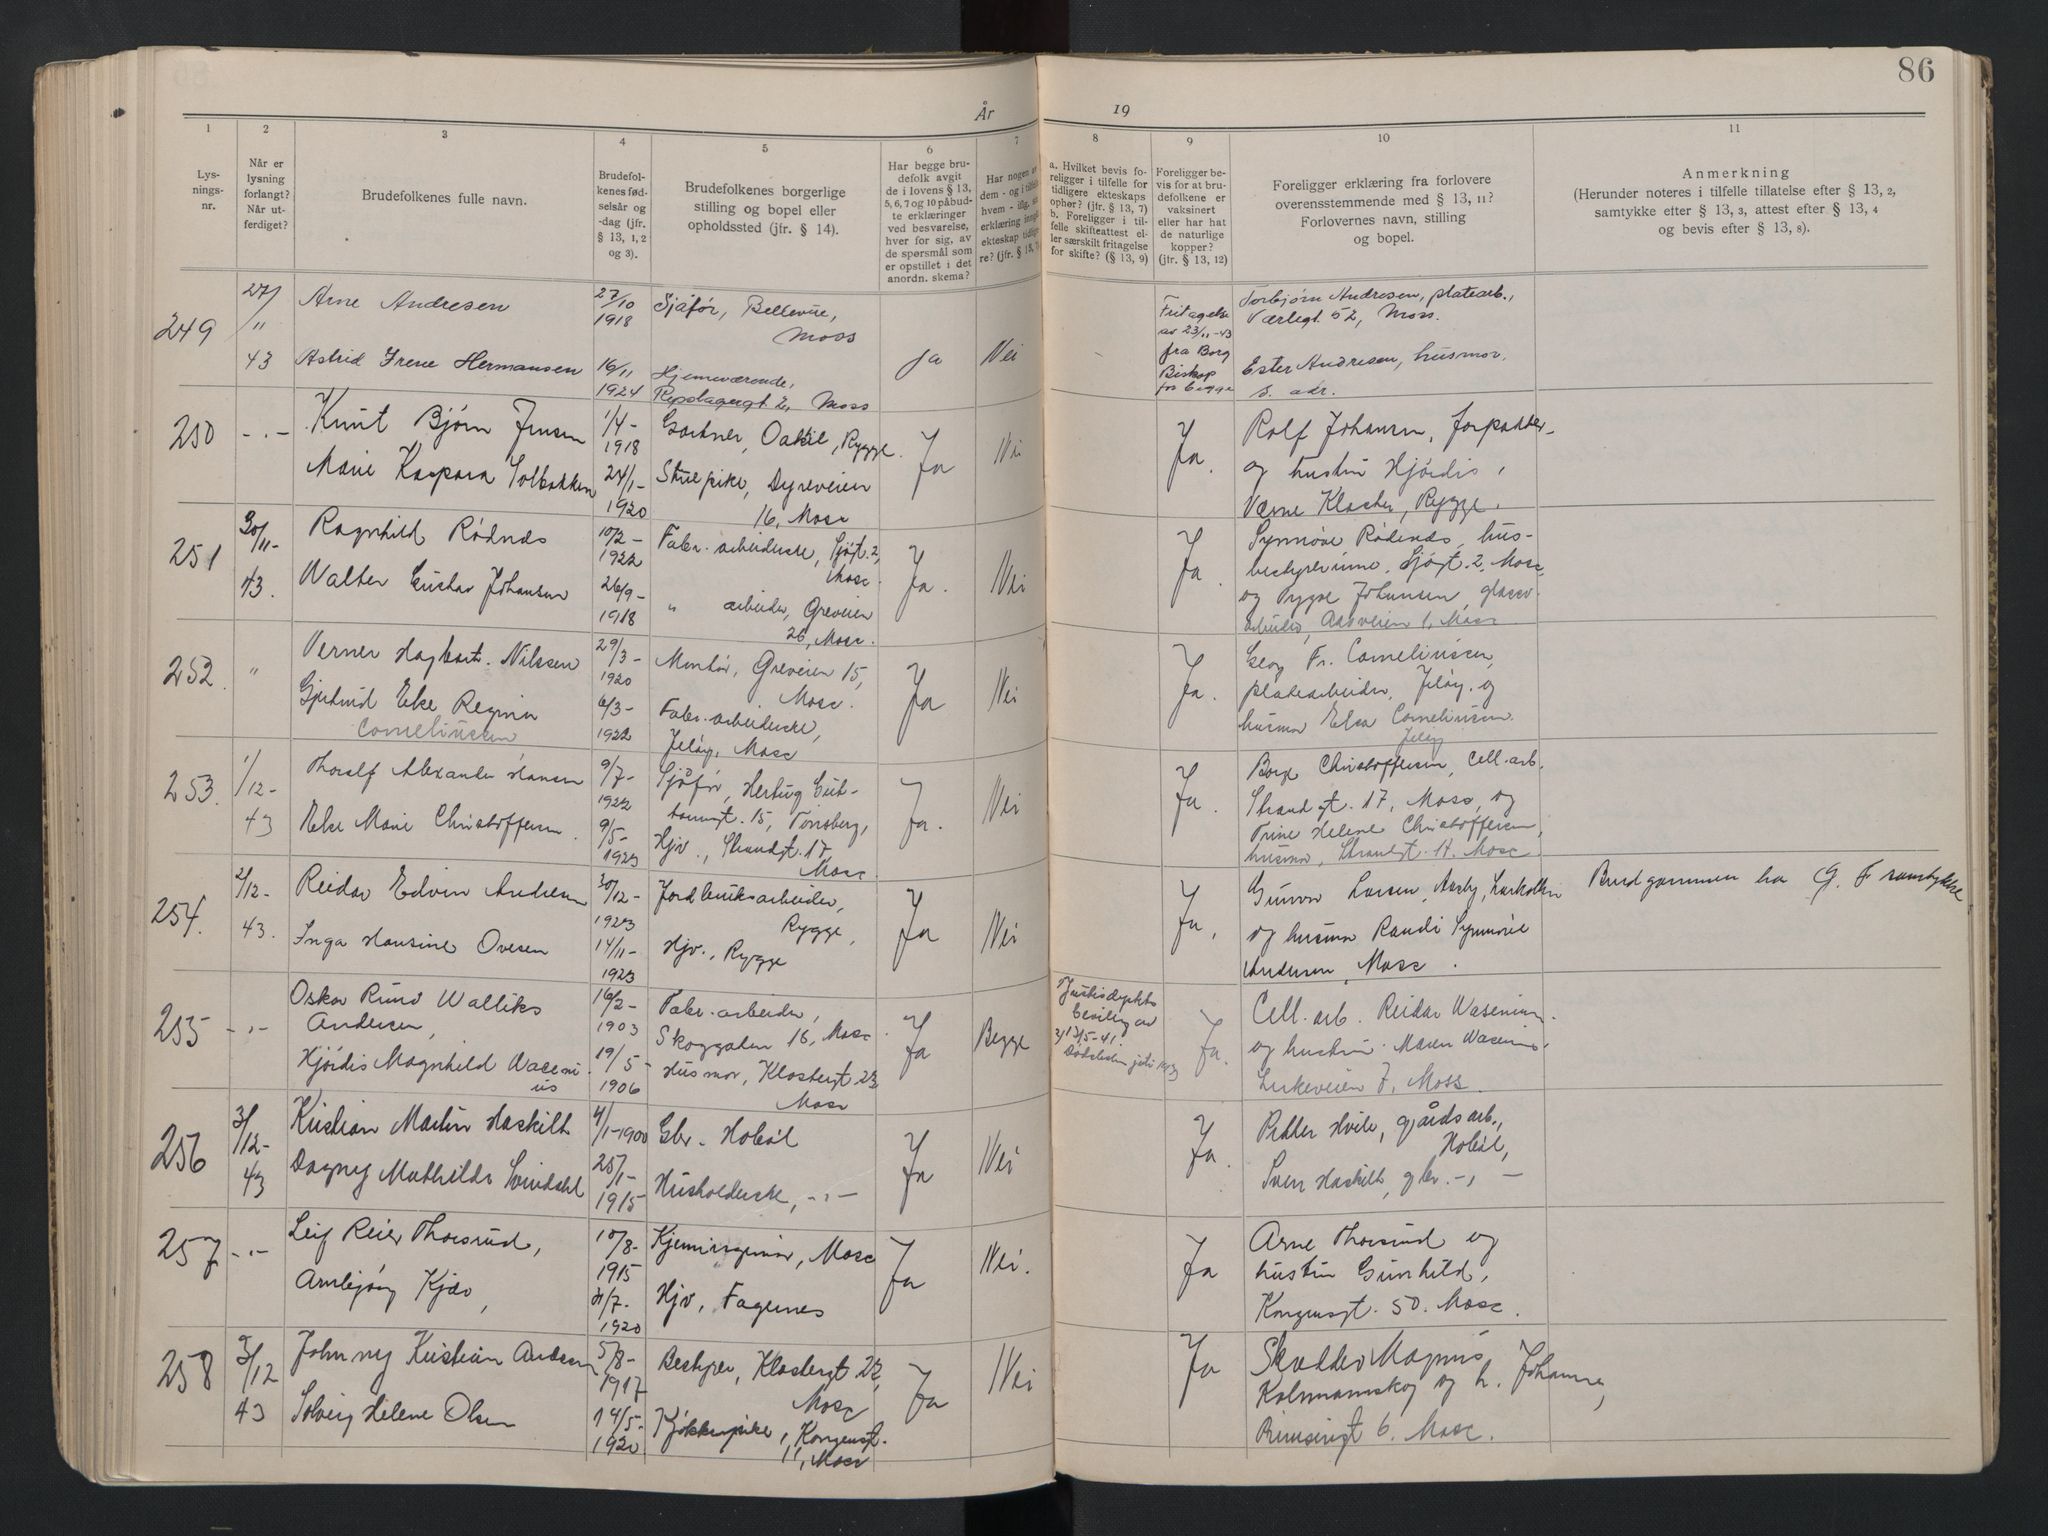 86
År 19
1 2 3 4 5 6 7 8 9 10 11
Lys-
nings-
nr.
Når er
lysning
forlangt?
Når ut-
ferdiget?
Brudefolkenes fulle navn.
Brudefol-
kenes fød-
selsår og
-dag (jfr.
§ 13, 1, 2
og 3).
Brudefolkenes borgerlige
stilling og bopel eller
opholdssted (jfr. § 14).
Har begge bru-
defolk avgit
de i lovens § 13,
5, 6, 7 og 10 påbud-
te erklæringer
ved besvarelse,
hver for sig, av
de spørsmål som
er opstillet i det
anordn. skema?
Har nogen av
dem - og i tilfelle
hvem - iflg. sin
erklæring inngått
ekteskap tidlige-
re? (jfr. § 13, 7)
a. Hvilket bevis fo-
religger i tilfelle for
tidligere ekteskaps
ophør? (jfr. § 13, 7)
b. Foreligger i til-
felle skifteattest el-
ler særskilt fritagelse
for skifte? (§ 13, 9)
Foreligger be-
vis for at bru-
defolkene er
vaksinert
eller har hat
de naturlige
kopper?
(jfr. § 13, 12)
Foreligger erklæring fra forlovere
overensstemmende med § 13, 11?
Forlovernes navn, stilling
og bopel.
Anmerkning
(Herunder noteres i tilfelle tillatelse efter § 13, 2,
samtykke etter § 13, 3, attest efter § 13, 4
og bevis efter § 13, 8).
249
27/
11
43
Arne Andresen
Astrid Irene Hermansen
27/10
1918
16/11
1924
Sjåfør, Bellevue,
Moss
Hjemmeværende,
Repslagergt 2, Moss
Ja
Nei
Fritagelse
av 23/11-43
fra Borg
Biskop
for begge
Torbjørn Andresen, platearb.,
Værlegt. 52, Moss.
Ester Andresen, husmor.
s. adr.
250
-"-
Knut Bjørn Jensen
Marie Kaspara Solbakken
1/4-
1918
24/1-
1920
Gartner, Rygge.
Stuepike, Dyreveien
16, Moss
Ja
Nei
Ja.
Rolf Johansen, forpakter
og hustru Hjørdis,
Værne Kloster, Rygge.
251
30/11-
43.
Ragnhild Rødnes
Walter Gustav Johansen
10/2-
1922
26/9-
1918
Fabr. arbeiderske, Sjøgt. 2,
Moss.
" arbeider, Greveien
26, Moss.
Ja.
Nei
Ja.
Synnøve Rødnes, hus-
bestyrerinne, Sjøgt. 2, Moss,
og Johansen, glass-
arbeider, Aasveien 1, Moss
252.
"
Verner Hagbart Nilssen
Gjertrud Else Regina
Corneliussen
29/3-
1920
6/3-
1922
Montør, Greveien 15,
Moss.
Fabr. arbeiderske,
Jeløy, Moss
Ja
Nei
Ja.
Georg Fr. Corneliussen,
platearbeider, Jeløy. og
husmor Elsa Corneliussen.
Jeløy
253.
1/12-
43
Thoralf Alexander Hansen
Else Marie Christoffersen.
9/7-
1922
9/5-
1923
Sjåfør, Hertug Gut-
tormsgt. 15, Tønsberg,
Hjv., Strandgt. 17
Moss
Ja.
Nei
Ja.
Borge Christoffersen, Cell. arb.
Strandgt. 17, Moss, og
Trine Helene Christoffersen,
husmor, Strandgt. 17. Moss
254.
2/12-
43.
Reidar Edvin Andersen
Inga Hansine Ovesen
30/12-
1923
14/11-
1923
Jordbruksarbeider,
Rygge,
Hjv., Rygge
Ja
Nei
Ja,
Gunnar Larsen, Larkollen
og husmor Randi Synnøve
Andersen, Moss.
Brudgommen har samtykke
255
-"-
Oskar Rund Walliks
Andersen,
Hjørdis Magnhild Waseni
us
16/2-
1903
19/5-
1906
Fabr. arbeider,
Skoggaten 16, Moss
Husmor, Klostergt 22,
Moss
Ja
Begge
Justisdepts
bevilling av
13/5-41
juli 1943
Ja.
Cell. arb. Reidar Wasenius.
og hustru Maren Wasenius,
Lerkeveien 7, Moss.
256
3/12-
43
Kristian Martin Haskilt
Dagny Mathilde Svindahl
4/1-1900
25/1-
1915
Gbr. Hobøl
Husholderske, -"-
Ja
Nei
Ja.
Petter Hvile, gårdsarb.,
Hobøl,
Sven Haskilt, gbr. -"-
257
-"-
Leif Reier Thorsrud,
Annbjørg Kjær,
10/8-
1915
/7-
1920
Kjemiingeniør, Moss
Hjv, Fagernes
Ja
Nei.
Ja
Arne Thorsrud og
hustru Gunhild,
Kongensgt. 50. Moss.
258
3/12
43
Johnny Kristian Andersen
Solveig Helene Olsen
5/8-
1917
14/5-
1920
Bestyrer, Klostergt 22,
Moss
Kjøkkenpike, Kongensgt.
11, Moss
Ja
Nei
Ja
Skredder Magnus
Kolnmannskog og h. Johanne,
6. Moss.